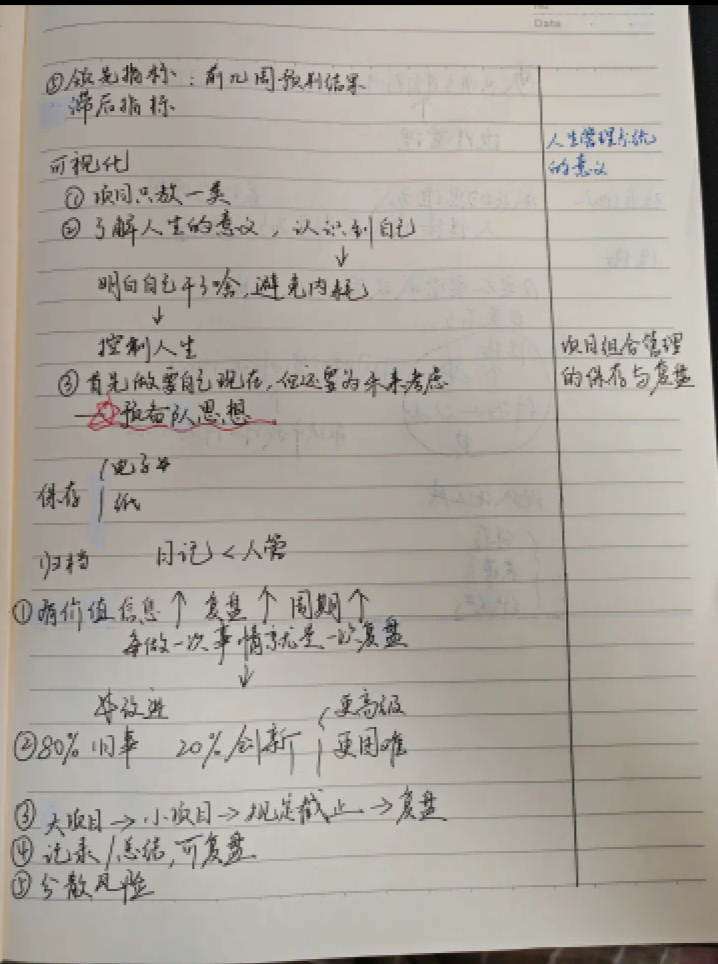 Date
⑤领先指标：前几周预判结果
滞后指标
人生管理系统
的意义
可视化
①项目只放一类
②了解人生的意义，认识到自己
↓
明白自己干了啥，避免内耗
↓
控制人生
项目组合管理
的保存与复盘
③首先做要自己现在，但还要为未来考虑
预备队思想
保存
电子
纸
归档 日记<人管
①有价值信息↑ 复盘↑ 周期↑
每做一次事情就是一次复盘
↓
改进
更高级
②80%旧事 20%创新
更困难
③大项目→小项目→规定截止→复盘
④记录/总结，可复盘
⑤分散风险